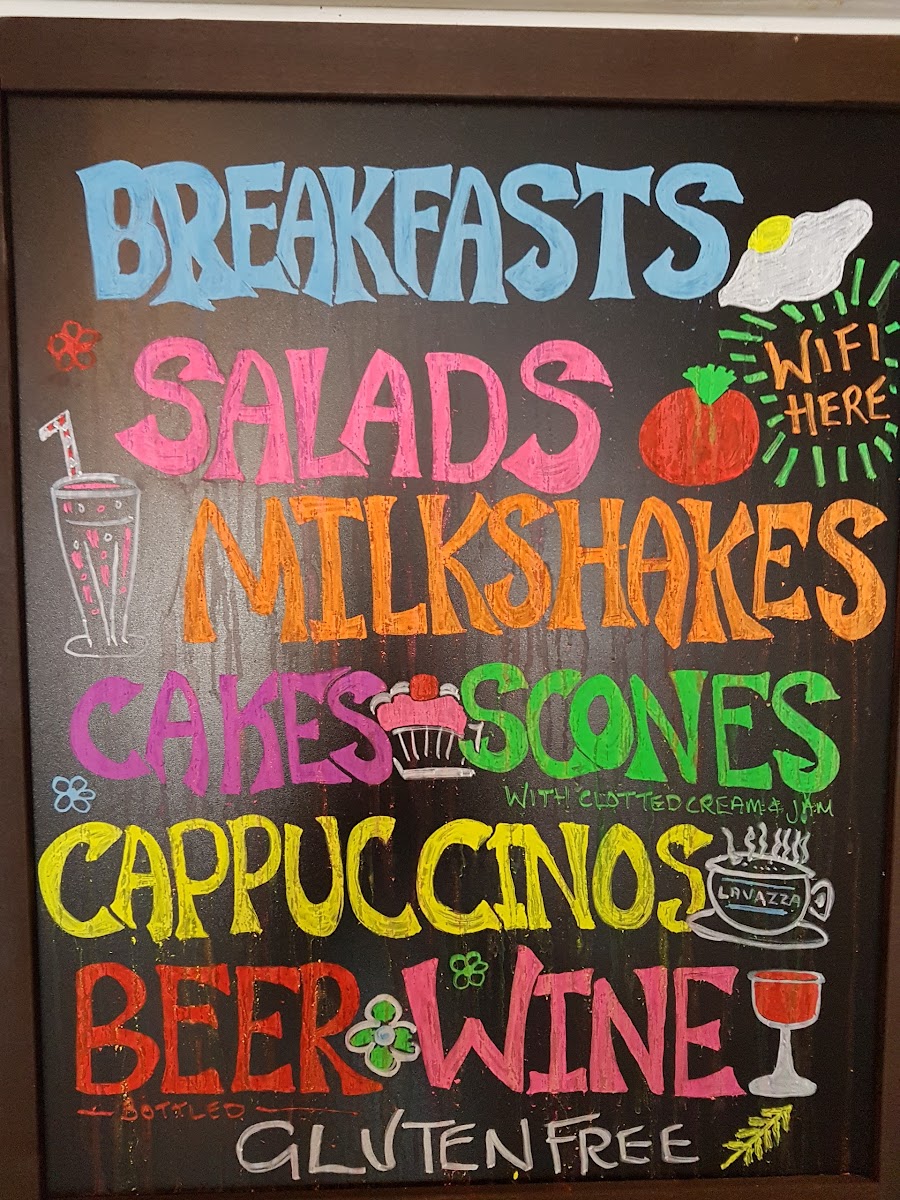 BREAKFASTS
SALADS
WIFI
HERE
MILKSHAKES
CAKES SCONES
WITH CLOTTED CREAM & JAM
CAPPUCCINOS
LAVAZZA
BEER WINE
BOTTLED
GLUTEN FREE